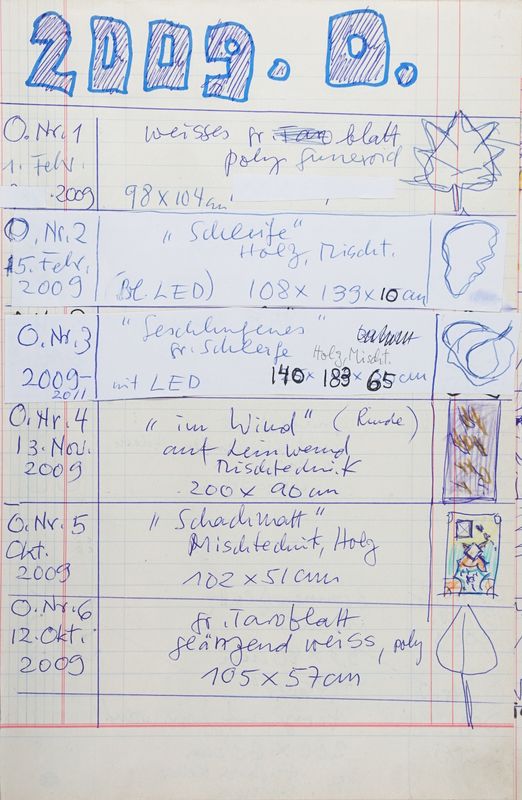 2009. O.
O.Nr.1
weisses gr. blatt
1. Febr.
2009
98 x 104 cm
O.Nr.2
"Schleife"
15. Febr.
Holz, Mischt.
2009
(Bl. LED) 108 x 139 x 10 cm
O.Nr.3
gr. Schleife
Holz, Mischt.
2009-
2011
mit LED 140 x 183 x 65 cm
O.Nr.4
"im Wind" (Runde)
13. Nov.
auf Leinwand
2009
Mischtechnik
200 x 90 cm
O.Nr.5
"Schachmatt"
Okt.
Mischtechnik, Holz
2009
102 x 51 cm
O.Nr.6
gr. Taroblatt
12. Okt.
glänzend weiss, poly
2009
105 x 57 cm